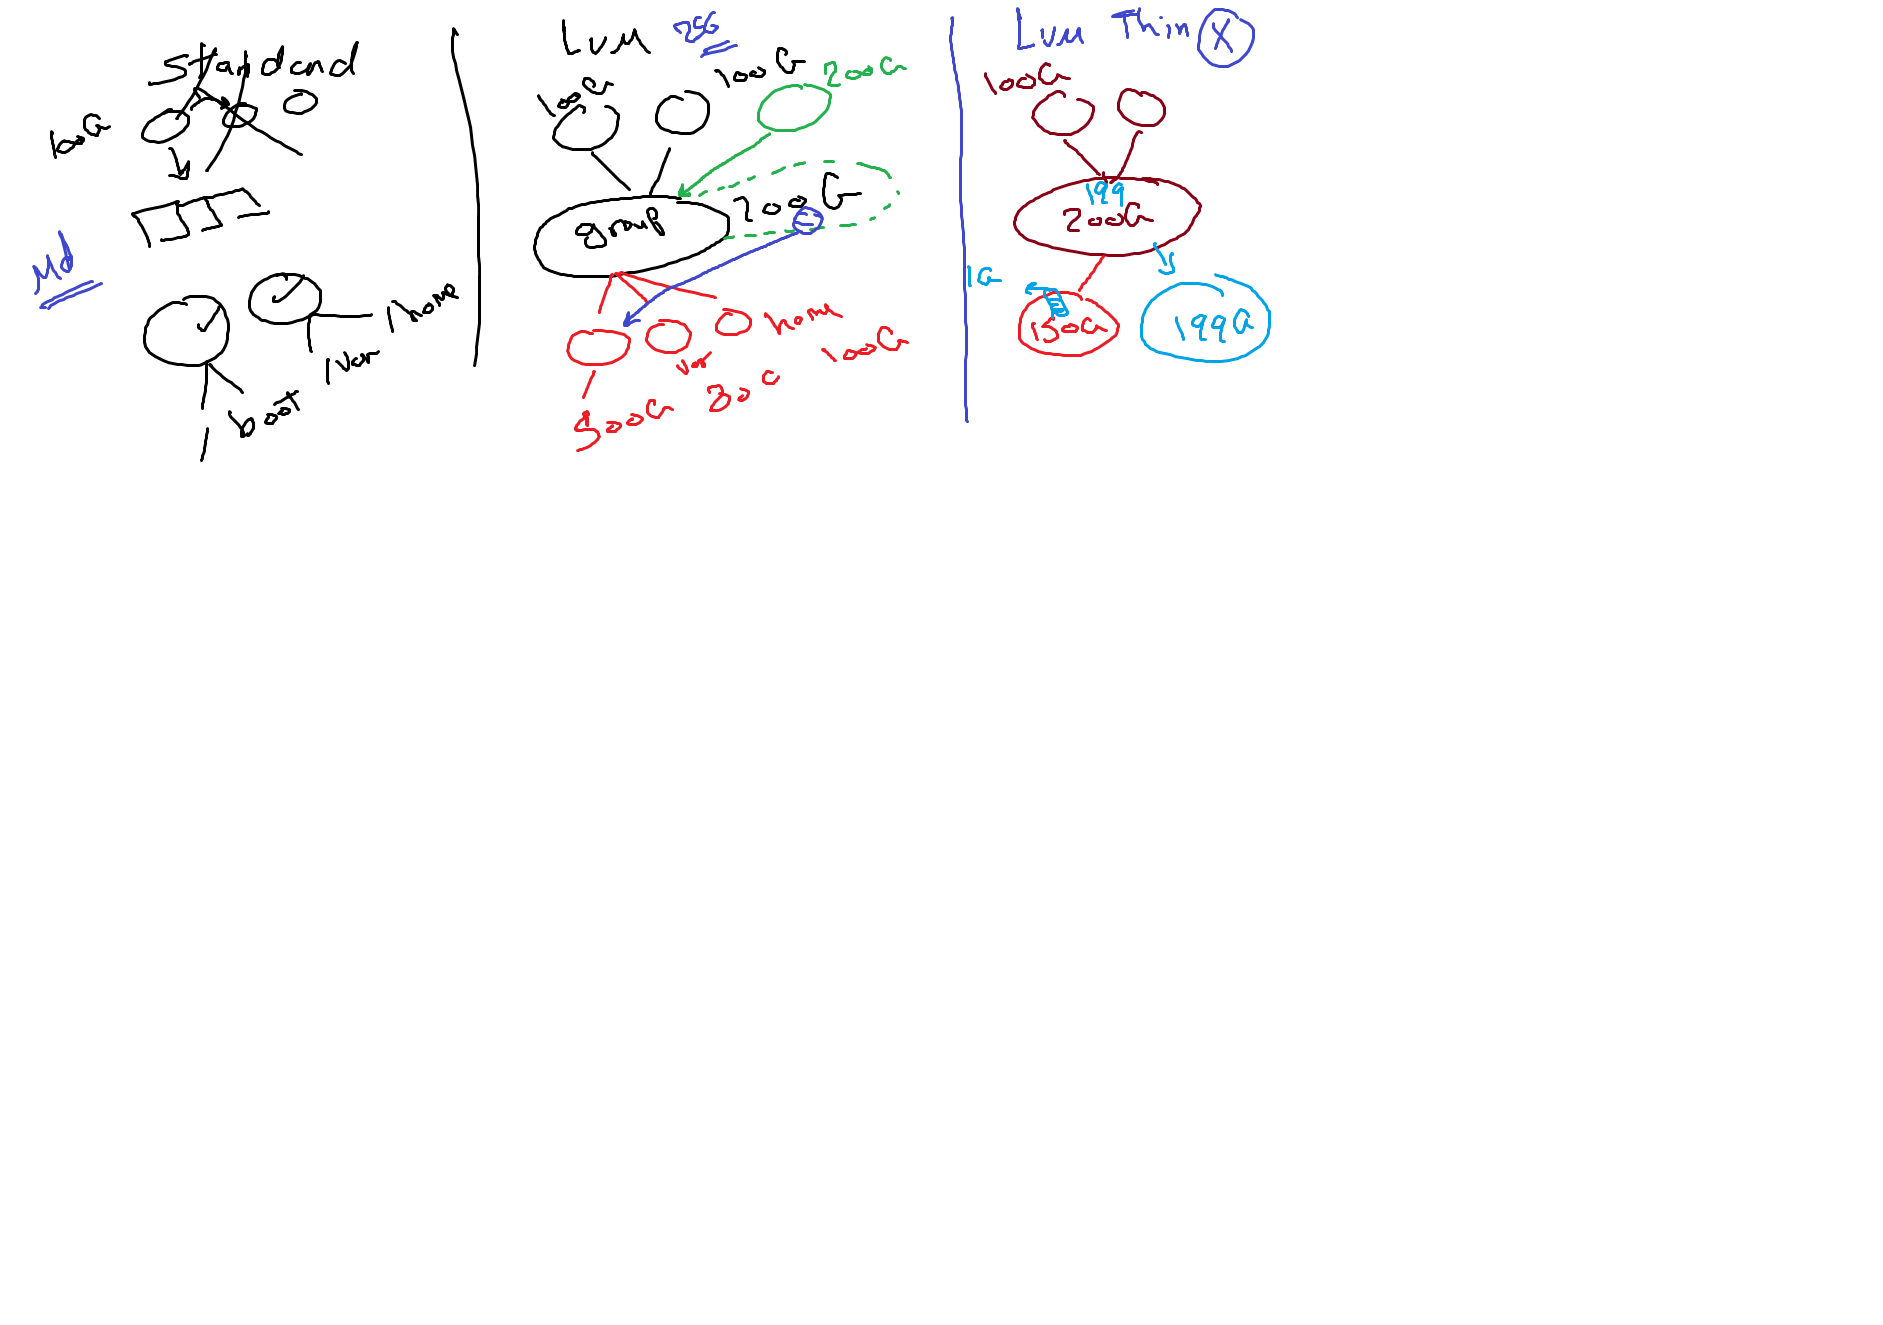 Standard
100G
Md
/home
/var
boot
/
LVM 256
100G
100G
200G
group
200G
home
var
100G
30G
500G
LVM Thin X
100G
199
200G
1G
150G
199G